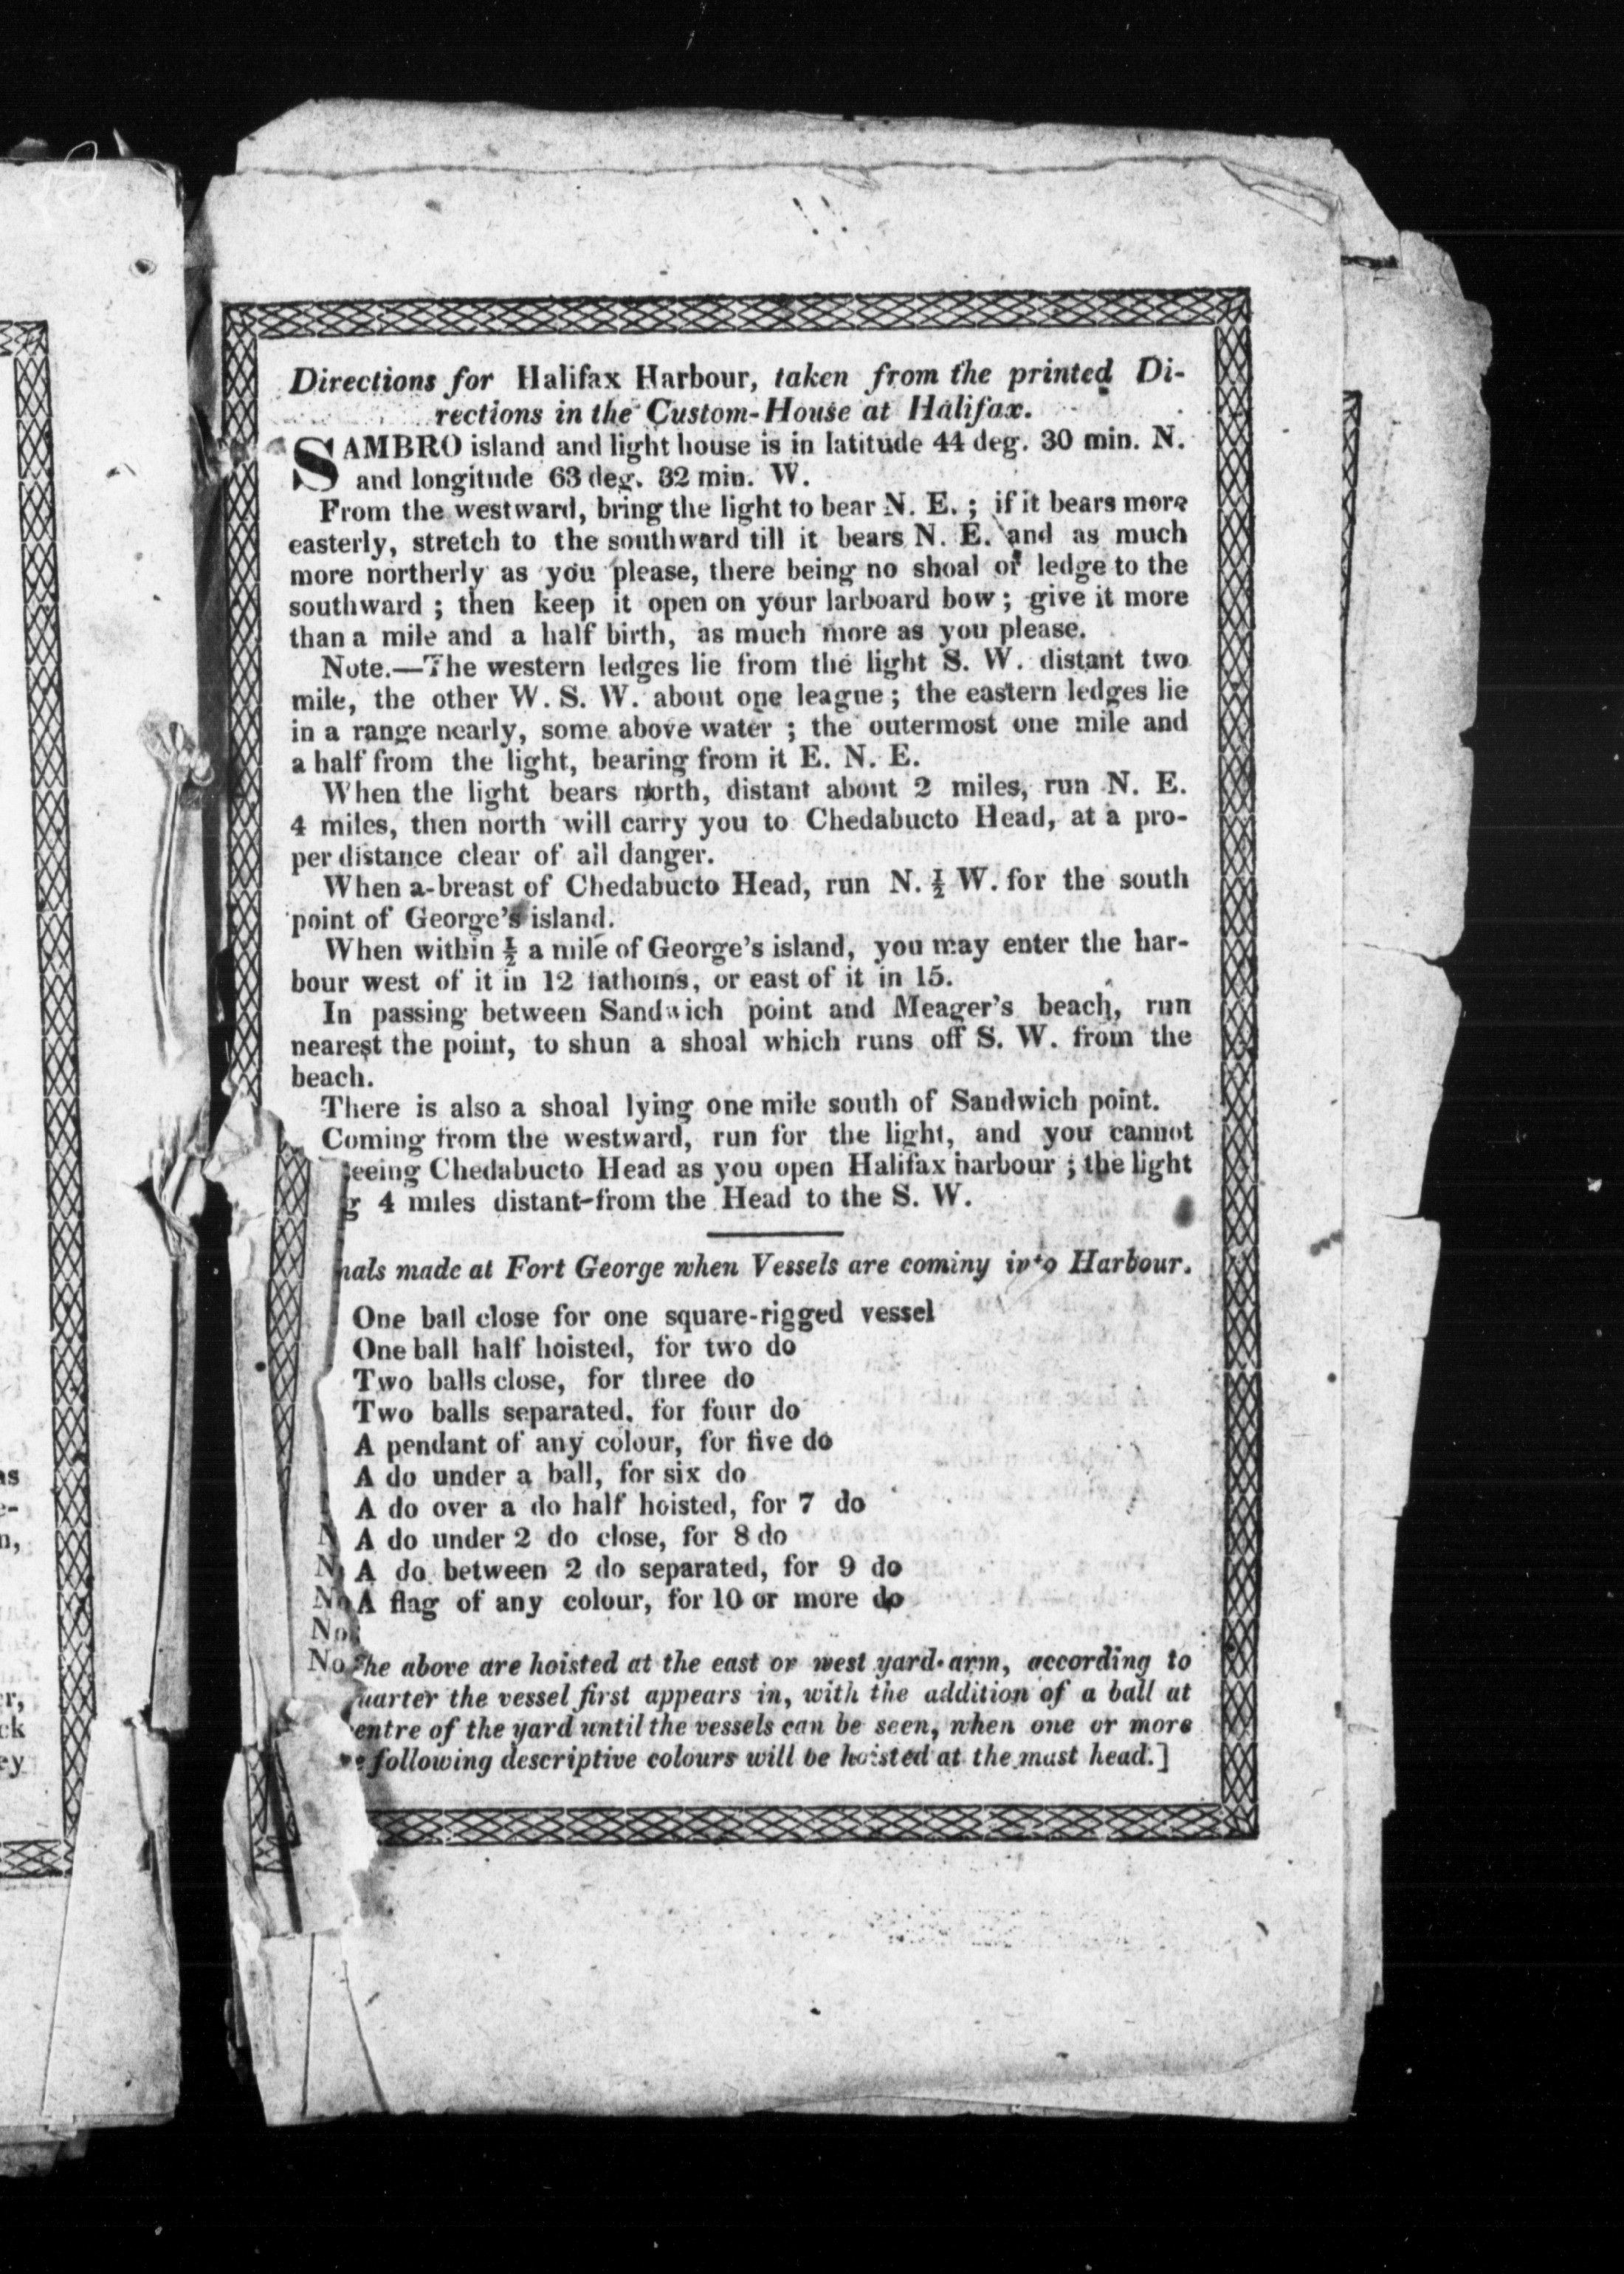 Directions for Halifax Harbour, taken from the printed Di-
rections in the Custom-House at Halifax.
SAMBRO island and light house is in latitude 44 deg. 30 min. N.
and longitude 63 deg. 32 min. W.
From the westward, bring the light to bear N. E. ; if it bears more
easterly, stretch to the southward till it bears N. E. and as much
more northerly as you please, there being no shoal or ledge to the
southward ; then keep it open on your larboard bow ; give it more
than a mile and a half birth, as much more as you please.
Note.—The western ledges lie from the light S. W. distant two
mile, the other W. S. W. about one league ; the eastern ledges lie
in a range nearly, some above water ; the outermost one mile and
a half from the light, bearing from it E. N. E.
When the light bears north, distant about 2 miles, run N. E.
4 miles, then north will carry you to Chedabucto Head, at a pro-
per distance clear of all danger.
When a-breast of Chedabucto Head, run N. ½ W. for the south
point of George's island.
When within ½ a mile of George's island, you may enter the har-
bour west of it in 12 fathoms, or east of it in 15.
In passing between Sandwich point and Meager's beach, run
nearest the point, to shun a shoal which runs off S. W. from the
beach.
There is also a shoal lying one mile south of Sandwich point.
Coming from the westward, run for the light, and you cannot
seeing Chedabucto Head as you open Halifax harbour ; the light
g 4 miles distant-from the Head to the S. W.
nals made at Fort George when Vessels are cominy into Harbour.
One ball close for one square-rigged vessel
One ball half hoisted, for two do
Two balls close, for three do
Two balls separated, for four do
A pendant of any colour, for five do
A do under a ball, for six do
A do over a do half hoisted, for 7 do
N A do under 2 do close, for 8 do
N A do between 2 do separated, for 9 do
No A flag of any colour, for 10 or more do
No
No he above are hoisted at the east or west yard-arm, according to
uarter the vessel first appears in, with the addition of a ball at
entre of the yard until the vessels can be seen, when one or more
e following descriptive colours will be hoisted at the mast head.]
as
e-
n,
r,
ck
ey